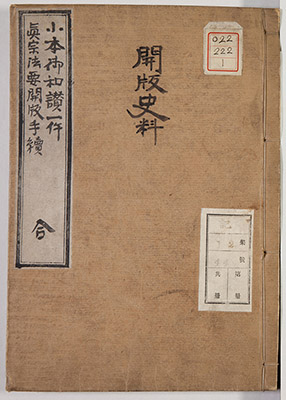 小本御和讃一件
真宗法要開版手續
合
開版史料
022
222
1